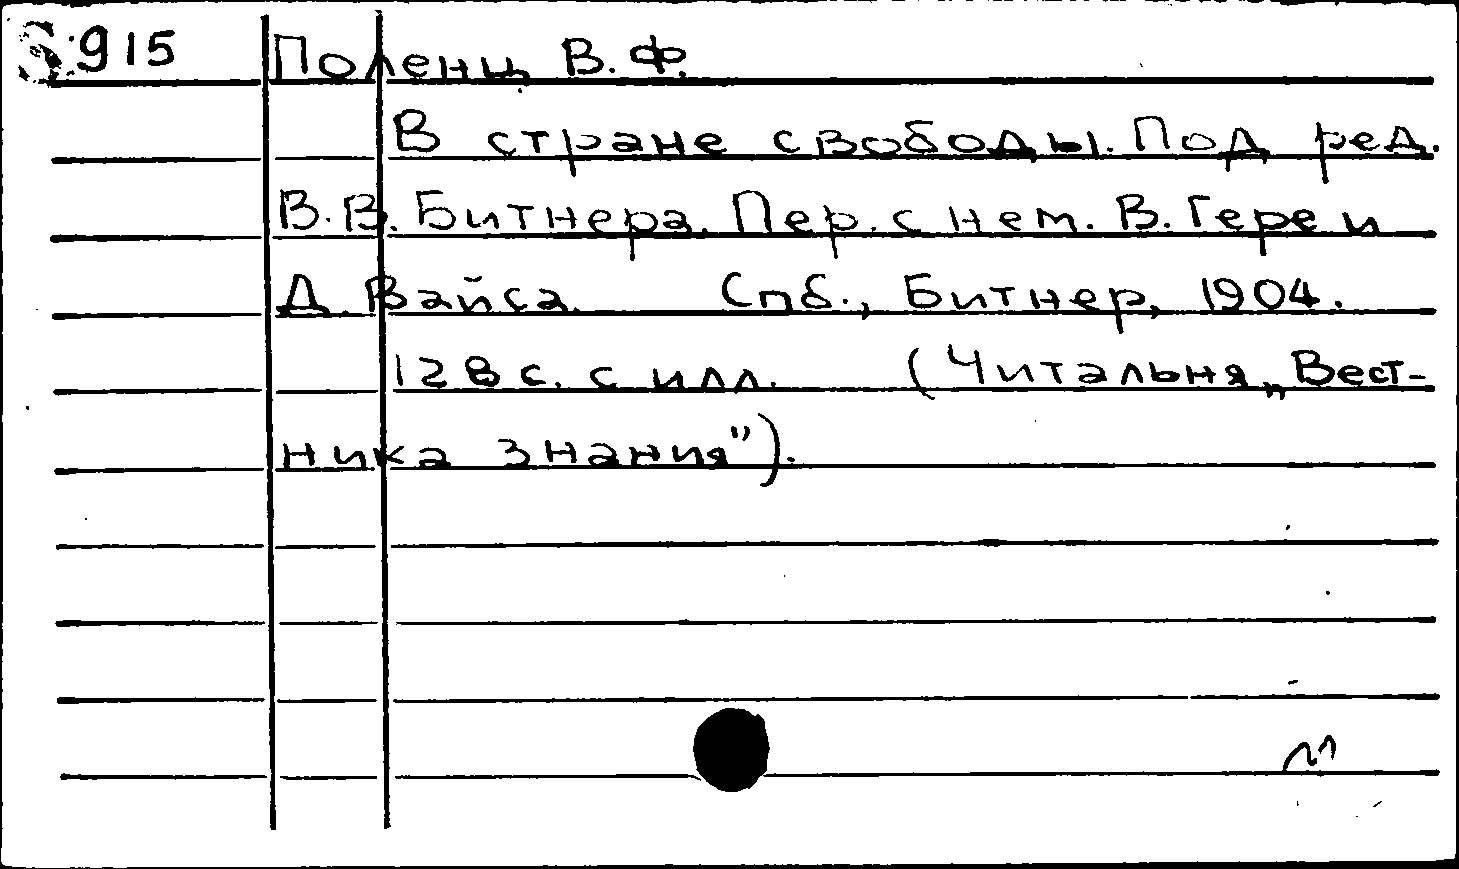 915 Поленц В.Ф.
В стране свободы. Под ред.
В.В. Битнера. Пер. с нем. В. Гере и
Д. Вайса. Спб., Битнер, 1904.
128 с. с илл. (Читальня „Вест-
ника знания").